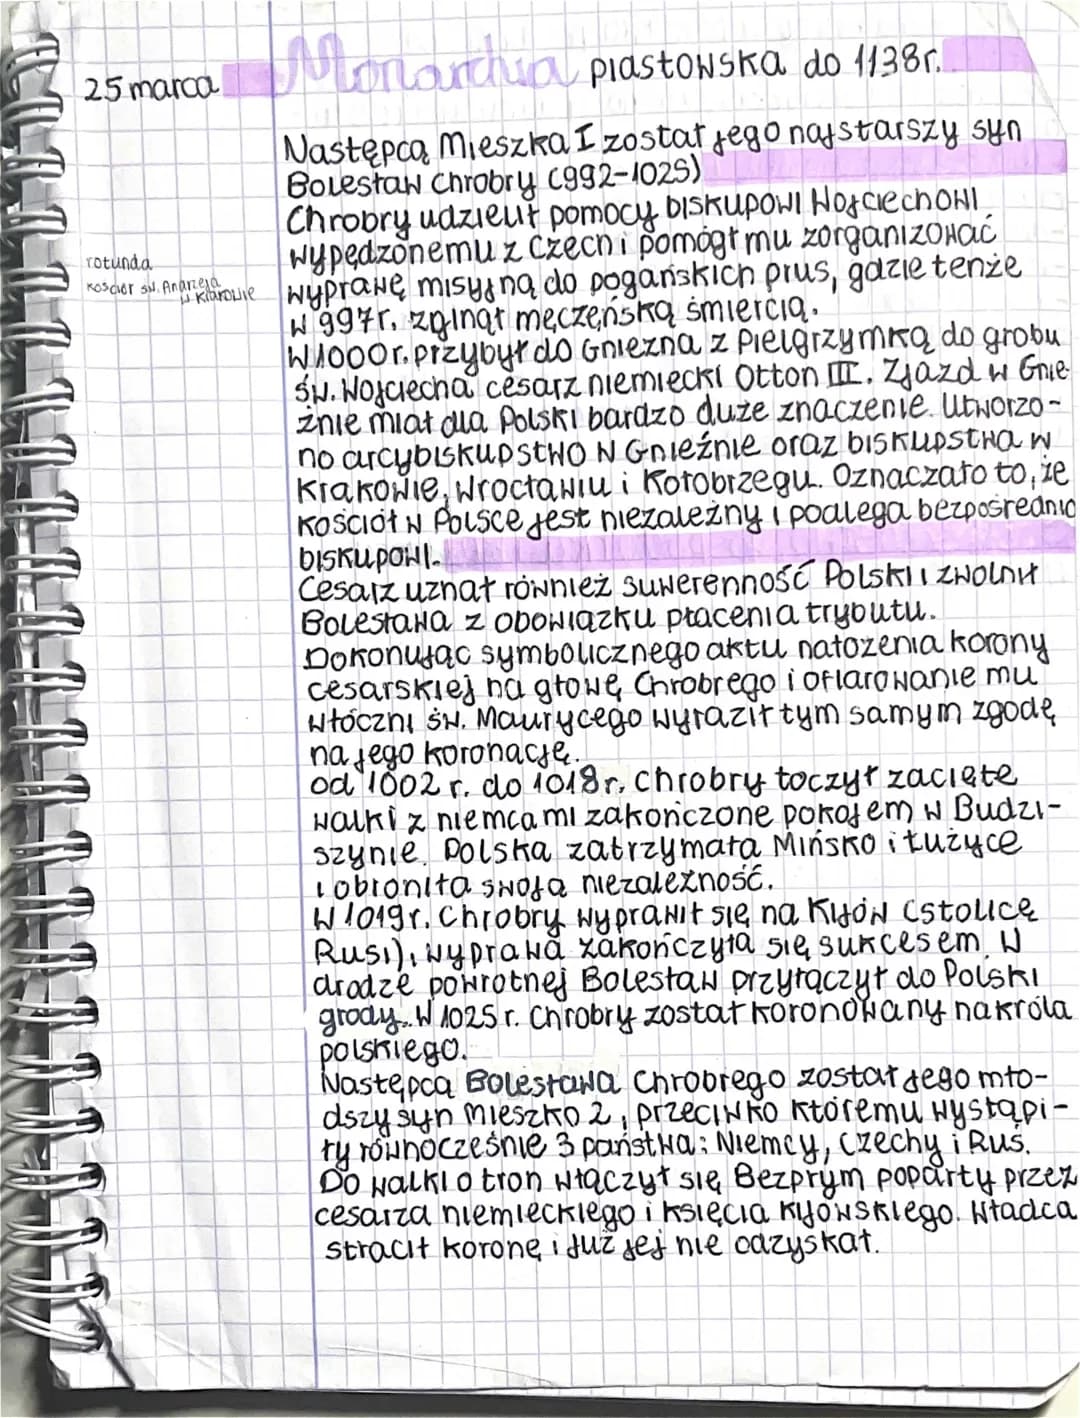 25 marca Monarchia piastowska do 1138r.
Następcą Mieszka I został jego najstarszy syn
Bolesław Chrobry (992-1025)
Chrobry udzielił pomocy biskupowi Wojciechowi
wypędzonemu z Czech i pomógł mu zorganizować
rotunda
kościół św. Andrzeja
w Krakowie
wyprawę misyjną do pogańskich prus, gdzie tenże
w 997r. zginął męczeńską śmiercią.
W 1000r. przybył do Gniezna z Pielgrzymką do grobu
św. Wojciecha cesarz niemiecki Otton III. Zjazd w Gnie-
źnie miał dla Polski bardzo duże znaczenie. Utworzo-
no arcybiskupstwo w Gnieźnie oraz biskupstwa w
Krakowie, Wrocławiu i Kołobrzegu. Oznaczało to, że
kościół w Polsce jest niezależny i podlega bezpośrednio
biskupowi.
Cesarz uznał również suwerenność Polski i zwolnił
Bolesława z obowiązku płacenia trybutu.
Dokonując symbolicznego aktu nałożenia korony
cesarskiej na głowę Chrobrego i ofiarowanie mu
włóczni św. Maurycego wyraził tym samym zgodę
na jego koronację.
od 1002 r. do 1018r. Chrobry toczył zacięte
walki z niemcami zakończone pokojem w Budzi-
szynie. Polska zatrzymała Mińsko i Łużyce
i obroniła swoją niezależność.
W 1019r. Chrobry wyprawił się na Kijów (stolicę
Rusi), wyprawa zakończyła się sukcesem. W
drodze powrotnej Bolesław przyłączył do Polski
grody. W 1025 r. Chrobry został koronowany na króla
polskiego.
Następcą Bolesława Chrobrego został jego mło-
dszy syn Mieszko 2, przeciwko któremu wystąpi-
ły równocześnie 3 państwa: Niemcy, Czechy i Ruś.
Do walki o tron włączył się Bezprym poparty przez
cesarza niemieckiego i księcia kijowskiego. Władca
stracił koronę i już jej nie odzyskał.